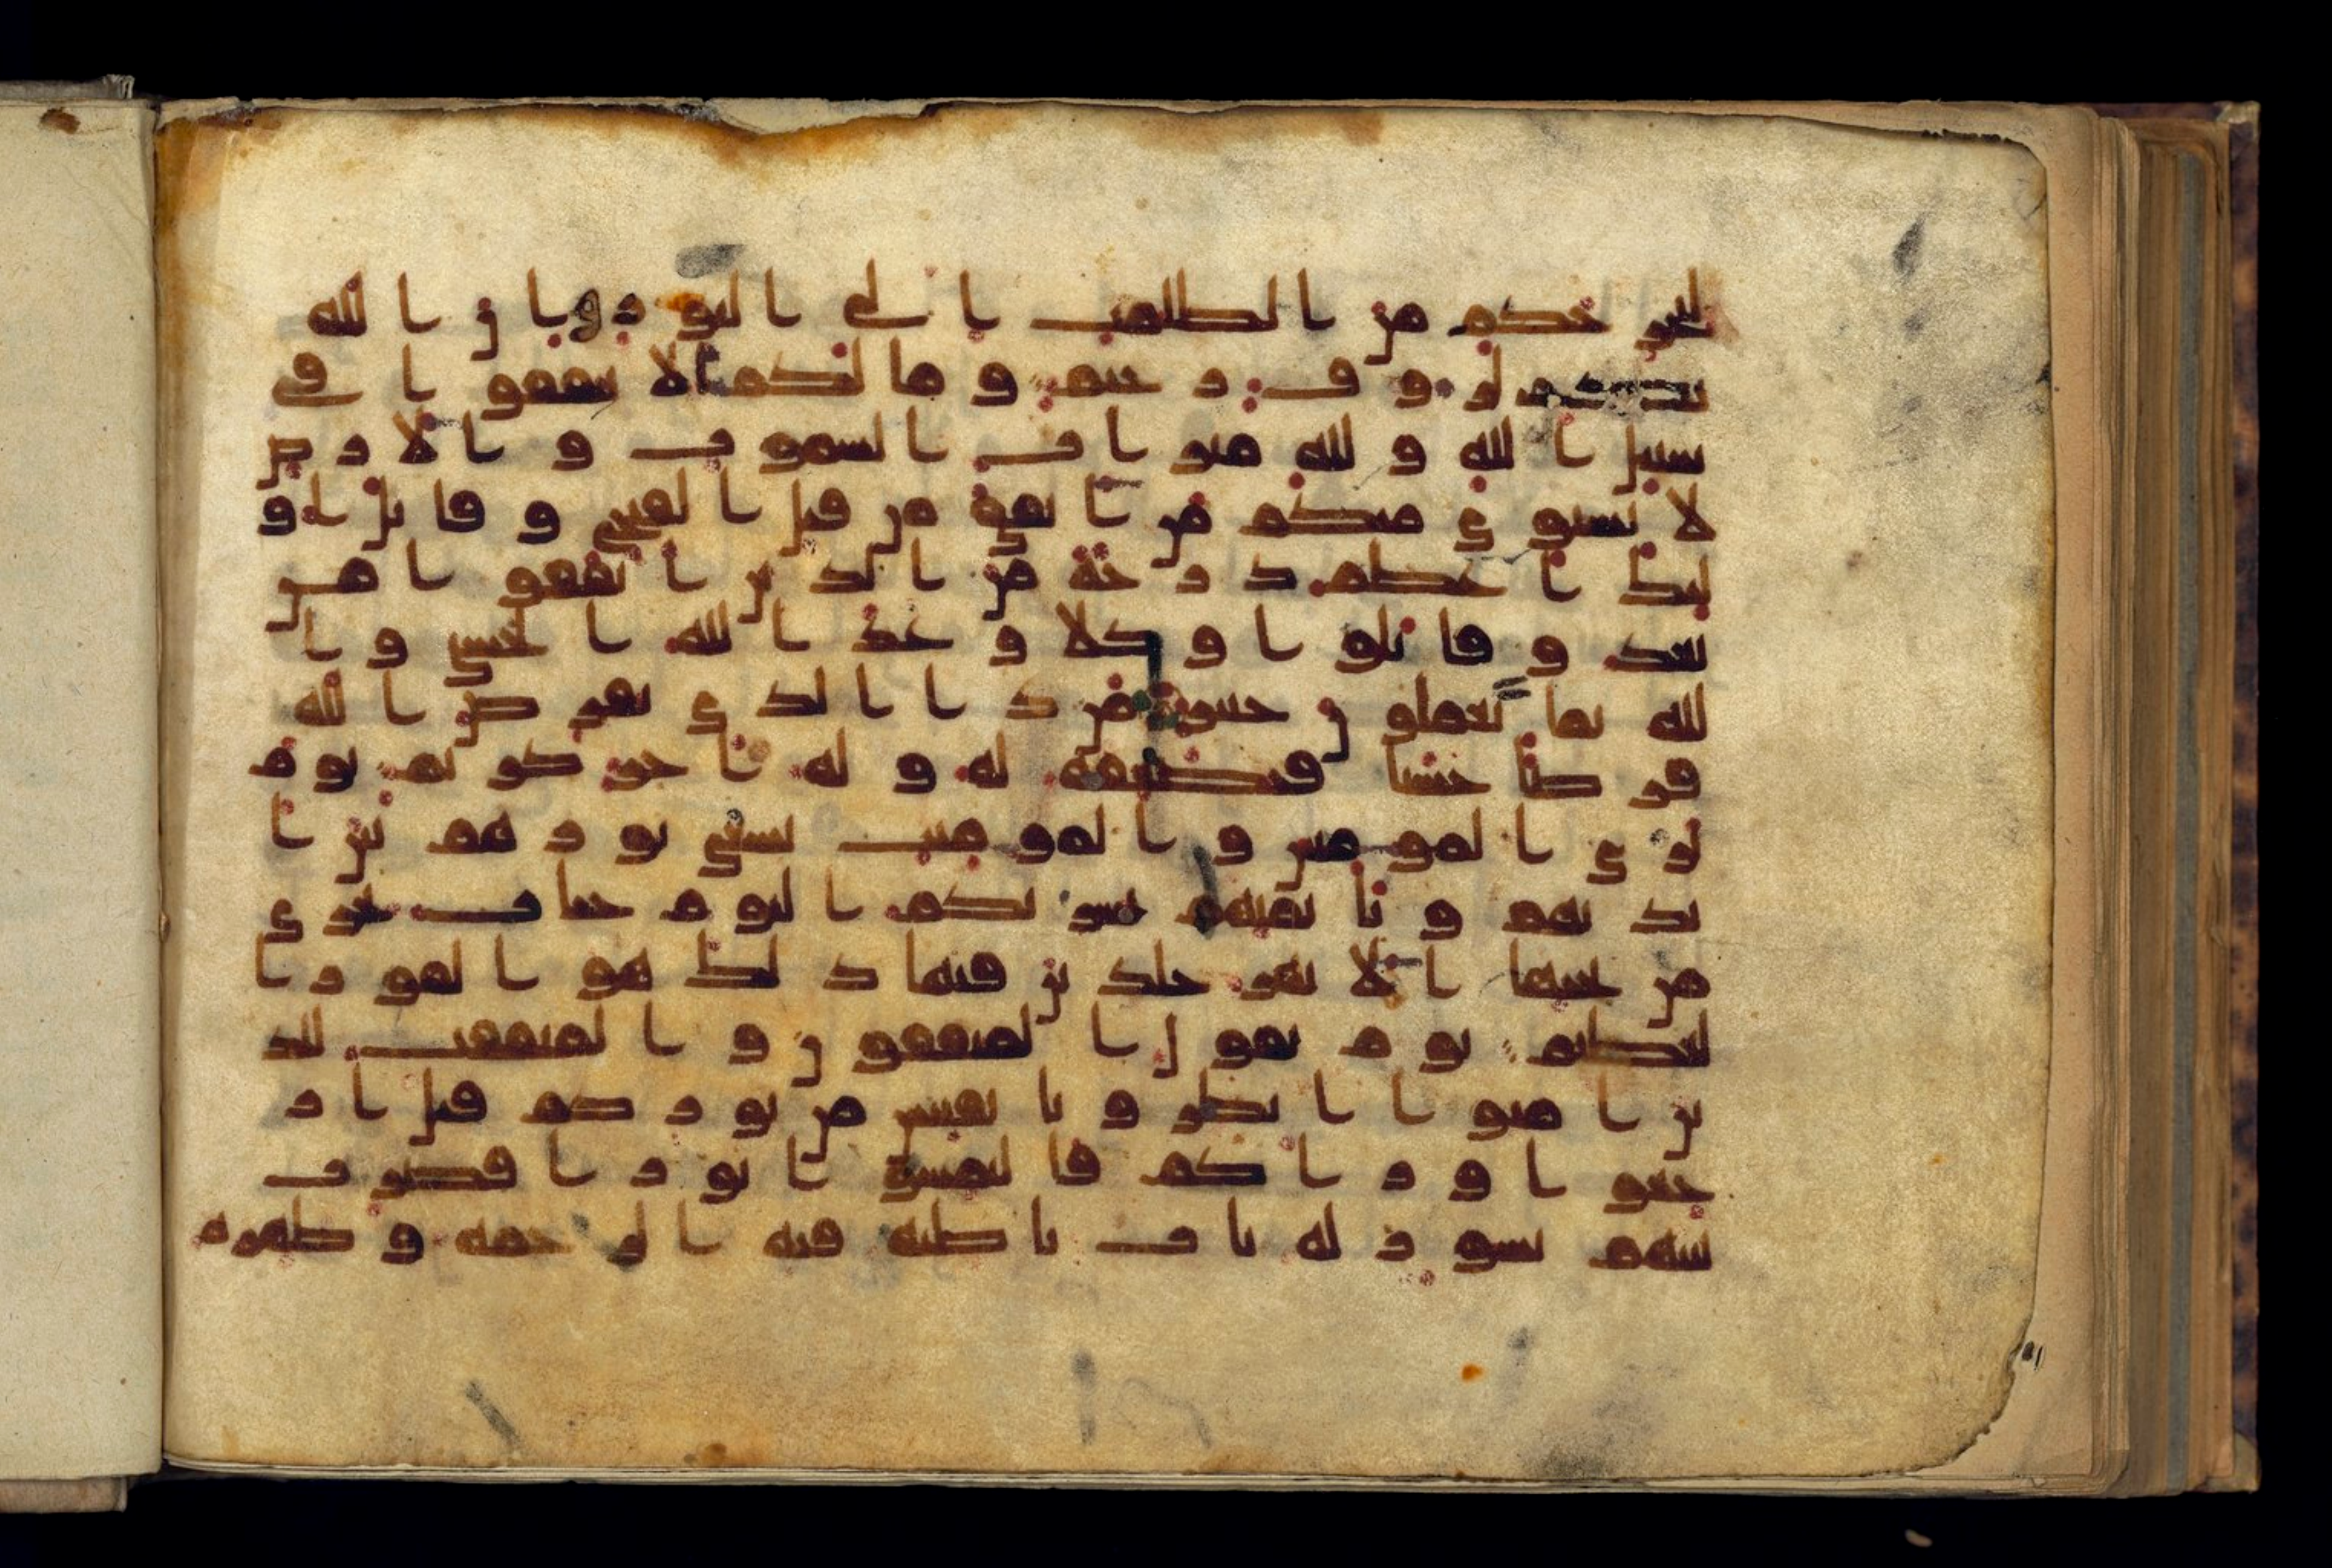 ليخرجكم من الظلمت الى النور وان الله
بكم لروف رحيم وما لكم الا تنفقوا في
سبيل الله ولله ميراث السموت والارض
لا يستوي منكم من انفق من قبل الفتح وقاتل او
ليك اعظم درجة من الذين انفقوا من
بعد وقاتلوا وكلا وعد الله الحسنى وا
لله بما تعملون خبير من ذا الذي يقرض الله
قرضا حسنا فيضعفه له وله اجر كريم يوم
ترى المومنين والمومنت يسعى نورهم بين ا
يديهم وبايمنهم بشريكم اليوم جنات تجري
من تحتها الانهر خلدين فيها ذلك هو الفوز ا
لعظيم يوم يقول المنفقون والمنفقت للذ
ين امنوا انظرونا نقتبس من نوركم قيل ار
جعوا وراكم فالتمسوا نورا فضرب
بينهم بسور له باب باطنه فيه الرحمة وظهره